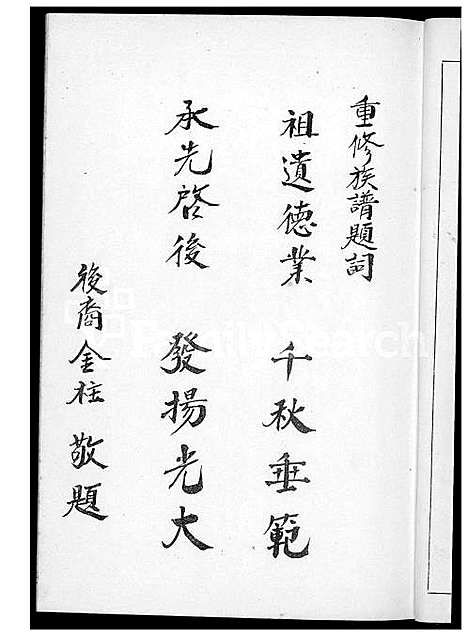 重修族譜題詞
祖遺德業　千秋垂範
承先啓後　發揚光大
後裔金柱　敬題
FamilySearch